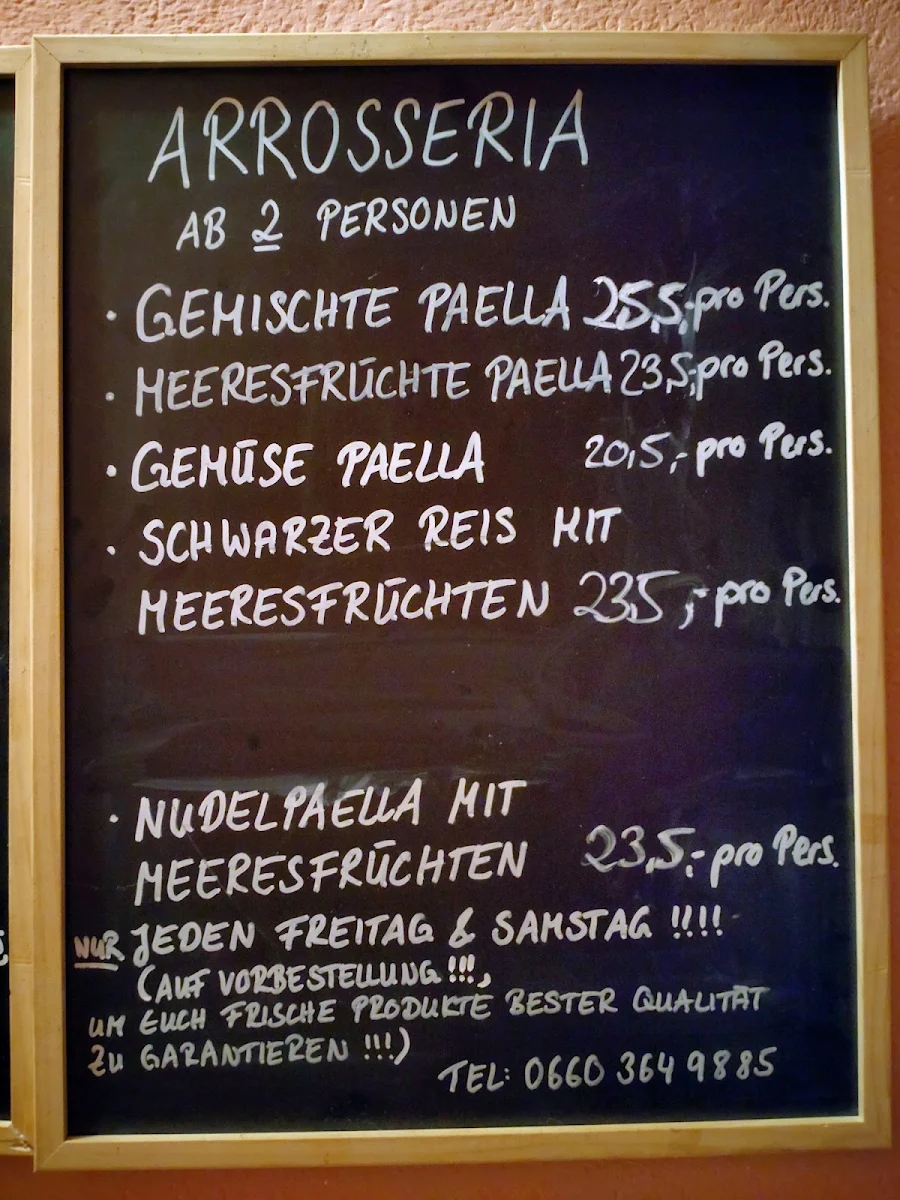 ARROSSERIA
AB 2 PERSONEN
· GEMISCHTE PAELLA 25,5,- pro Pers.
· MEERESFRÜCHTE PAELLA 23,5,- pro Pers.
· GEMÜSE PAELLA 20,5,- pro Pers.
· SCHWARZER REIS MIT
MEERESFRÜCHTEN 23,5,- pro Pers.
· NUDELPAELLA MIT
MEERESFRÜCHTEN 23,5,- pro Pers.
NUR JEDEN FREITAG & SAMSTAG !!!!
(AUF VORBESTELLUNG !!!,
UM EUCH FRISCHE PRODUKTE BESTER QUALITÄT
ZU GARANTIEREN !!!)
TEL: 0660 364 9885